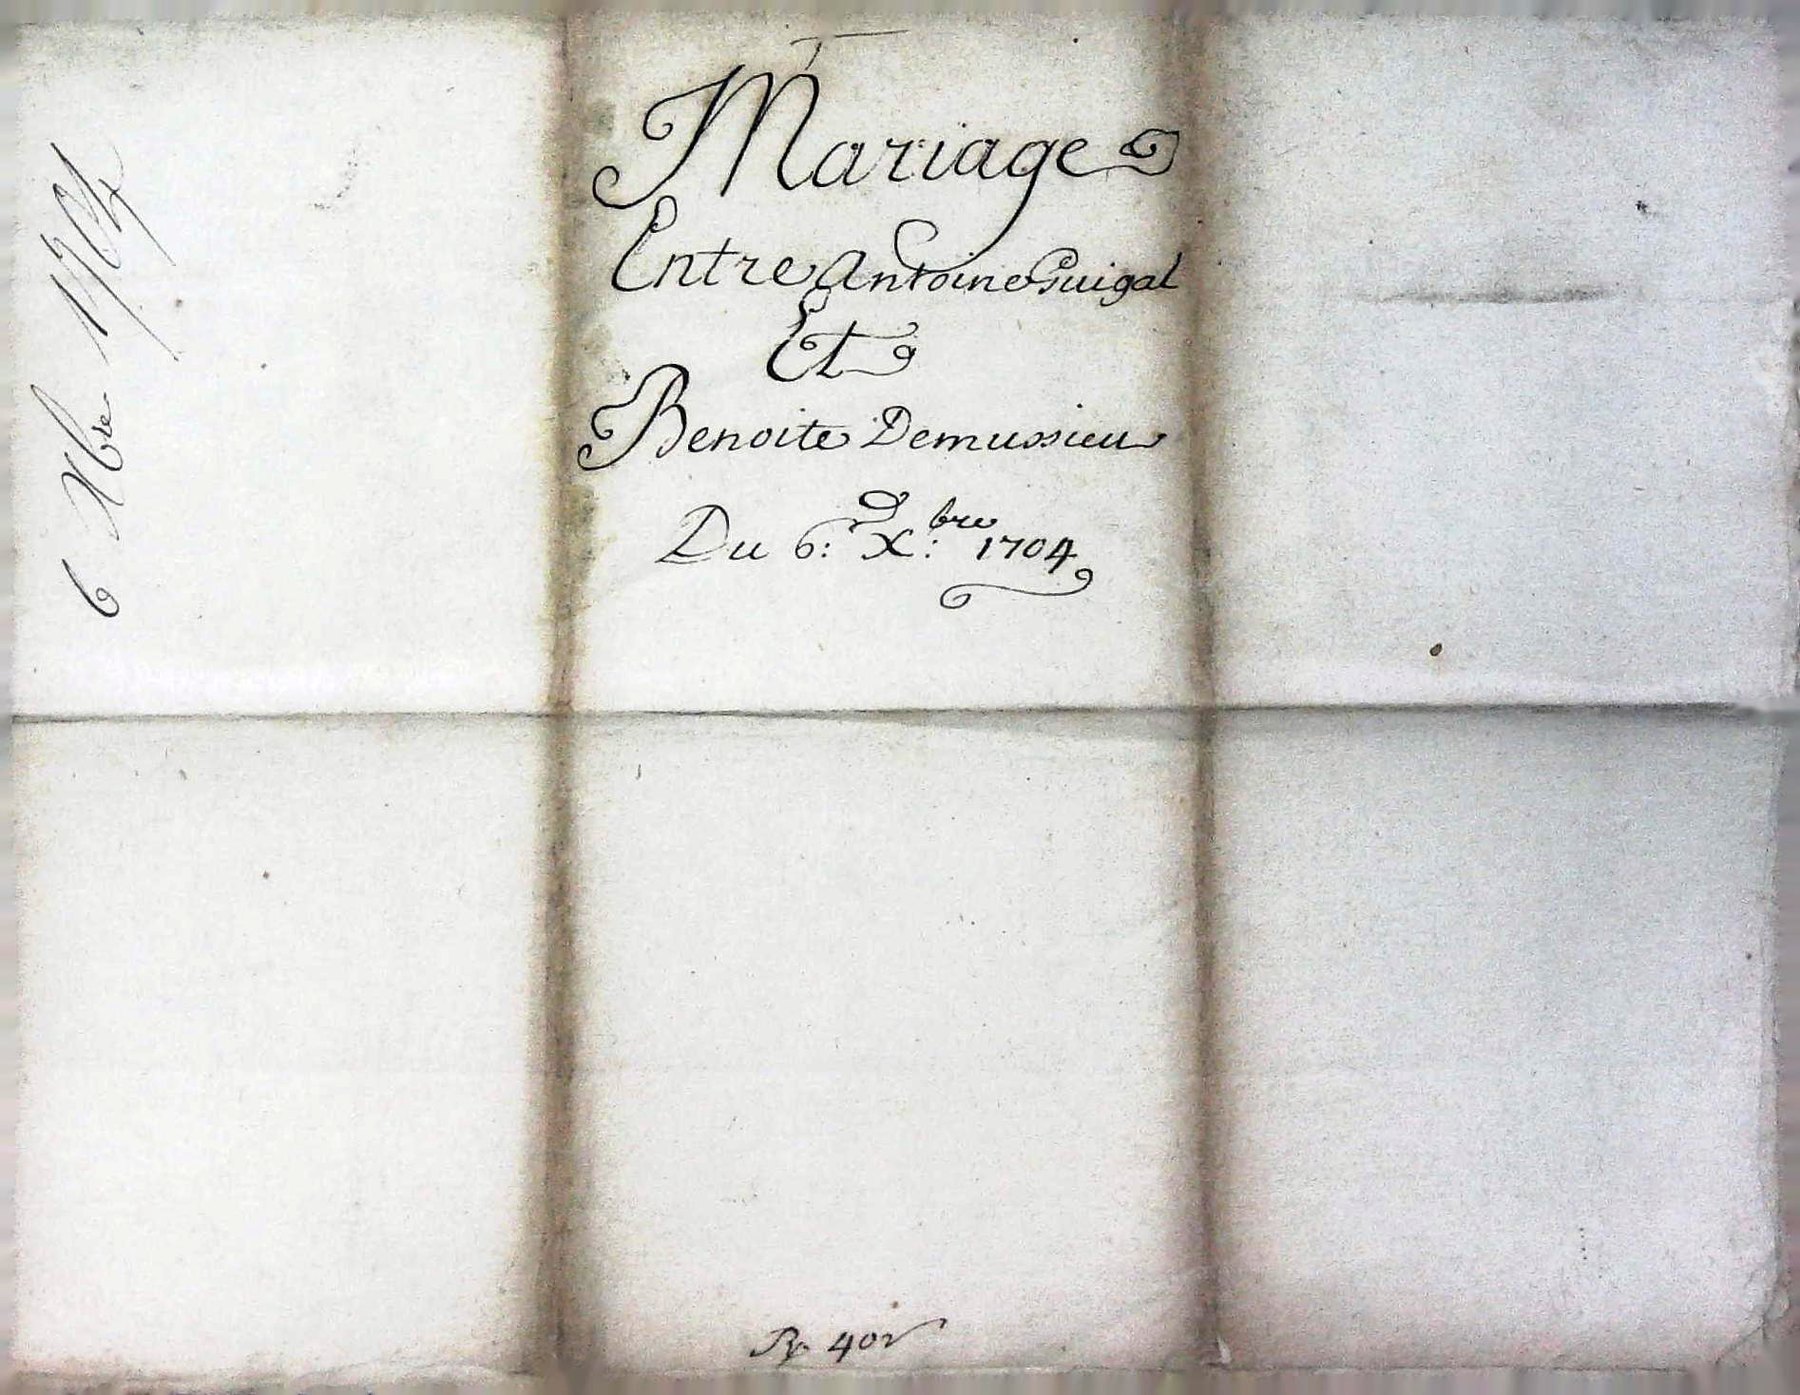 6 Xbre 1704
Mariage
Entre Antoine Guigal
Et
Benoite Demussieu
Du 6: X:bre 1704